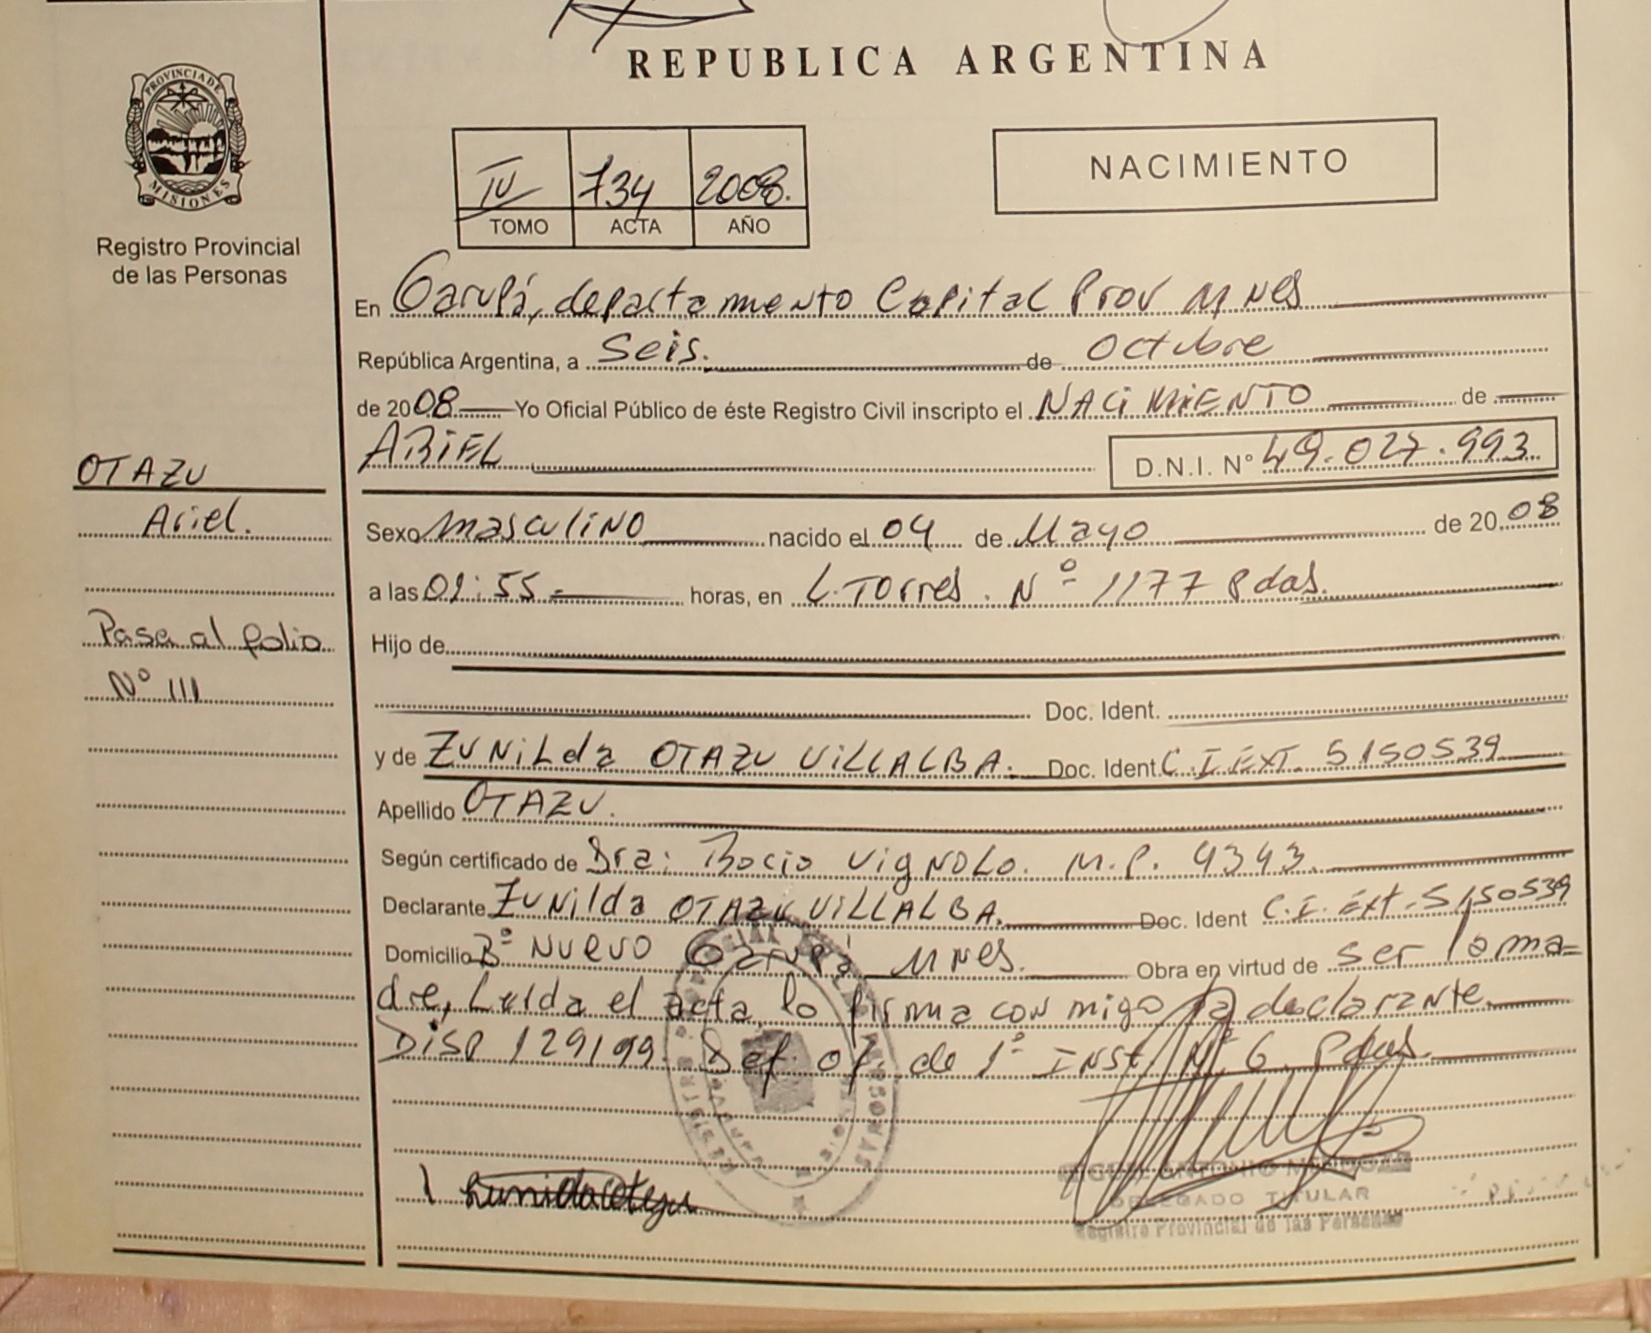 REPUBLICA ARGENTINA
PROVINCIA DE
MISIONES
Registro Provincial
de las Personas
IV 734 2008.
TOMO ACTA AÑO
NACIMIENTO
En Garupá, departamento Capital Prov Mnes
República Argentina, a Seis. de Octubre
de 2008 Yo Oficial Público de éste Registro Civil inscripto el NACIMIENTO de
ARIEL D.N.I. N° 49.027.993
OTAZU
Ariel.
Pasa al folio
N° 111
Sexo masculino nacido el 04 de Mayo de 2008
a las 01:55 horas, en L. Torres. N° 1177 Pdas.
Hijo de
Doc. Ident.
y de ZUNILda OTAZU VILLALBA. Doc. Ident C.I EXT. 5150539
Apellido OTAZU.
Según certificado de Dra: Rocio Vignolo. M.P. 4343.
Declarante ZUNilda OTAZU VILLALBA. Doc. Ident C.I. Ext. 5150539
Domicilio B° NUEVO Garupá Mnes. Obra en virtud de ser la ma=
dre, Leida el acta, lo firma conmigo la declarante.
DISP 129/99. Def. of. de 1° INST. N° 6 Pdas.
DELEGADO TITULAR
Registro Provincial de las Personas